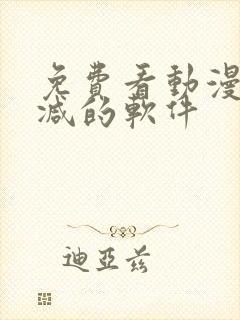 免費看動漫
減的軟件
迪亞兹